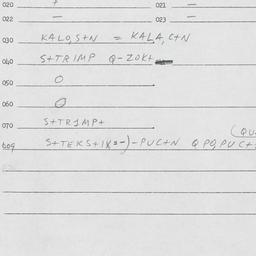 020 + 021 —
022 — 023 —
030 KALO,S+N = KALA,C+N
040 S+TRIMP Q-ZOK+
050 O
060 O
070 S+TRIMP+
(QU
S+TEKS+IK=-)-PUC+N Q PO,PUC+